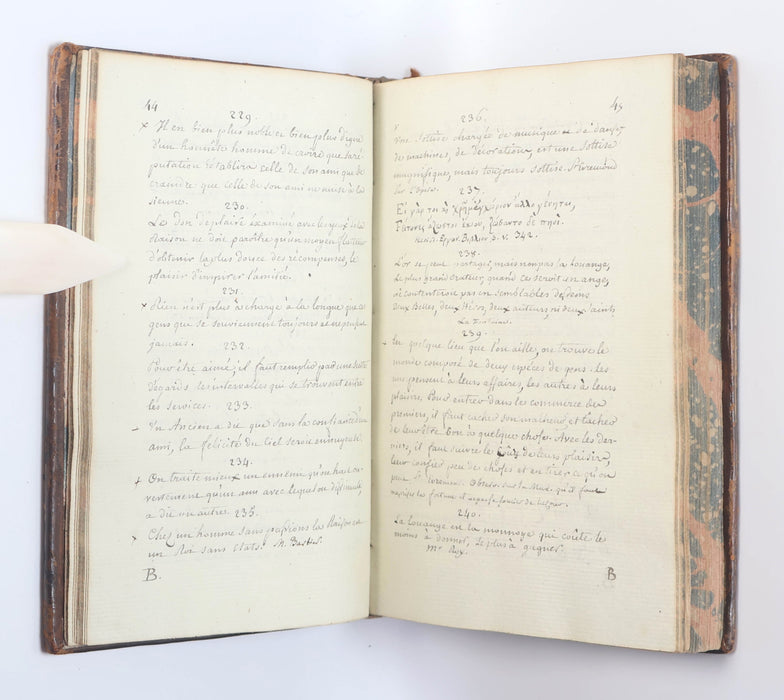 44
229.
x Il est bien plus noble et bien plus digne
d'un honnête homme de croire que sa ré-
putation établira celle de son ami que de
craindre que celle de son ami ne nuise à la
sienne.
230.
Le don de plaire examiné avec les yeux de la
Raison ne doit paroître qu'un moyen flatteur
d'obtenir la plus douce des récompenses, le
plaisir d'inspirer l'amitié.
231.
x Rien n'est plus à charge à la longue que les
gens qui se souviennent toujours et ne
jamais.
232.
Pour être aimé, il faut remplir par une suite
d'égards les intervalles qui se trouvent entre
les services.
233.
Un Ancien a dit que sans la confiance d'un
ami, la félicité du Ciel seroit ennuyeuse.
234.
+ On traite mieux un ennemi qu'on hait ou-
vertement qu'un ami avec lequel on dissimule,
a dit un autre.
235.
Chez un homme sans passions la Raison est
un Roi sans états.
B.
45
236.
Une Sottise chargée de musique et de danse,
de machines, de décoration, est une sottise
magnifique, mais toujours sottise. St. Evremond
sur l'Opera.
237.
Εἰ γάρ τοι χρῆμ' ἐγχώριον ἄλλο γένηται,
Γείτονες ἄζωστοι ἔκιον, ζώσαντο δὲ πηοί.
342.
238.
L'or se peut partager, mais non pas la louange,
Le plus grand orateur, quand ce seroit un ange,
Ne contenteroit pas en semblables desseins
Deux Belles, deux Héros, deux auteurs, ni deux saints
La Fontaine.
239.
En quelque lieu que l'on aille, on trouve le
monde composé de deux espèces de gens: les
uns pensent à leurs affaires, les autres à leurs
plaisirs. Pour entrer dans le commerce des
premiers, il faut cacher son malheur et tacher
de leur être bon à quelque chose. Avec les der-
niers, il faut suivre le goût de leurs plaisirs,
leur confier peu de choses et en tirer ce qu'on
peut. St. Evremond.
240.
La louange est la monnoye qui coûte le
moins à donner, le plus à gagner.
Mr
B